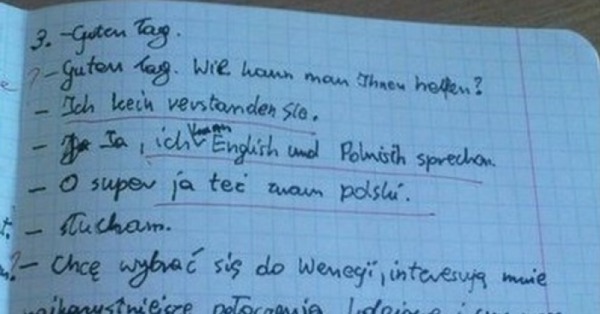 3. - Guten Tag.
- Guten Tag. Wie kann man Ihnen helfen?
- Ich kein verstanden sie.
- Ja, ich kann English und Polnisch sprechen.
- O super ja też znam polski.
- Słucham.
- Chcę wybrać się do Wenegi, interesują mnie
najkorzystniejsze połączenia